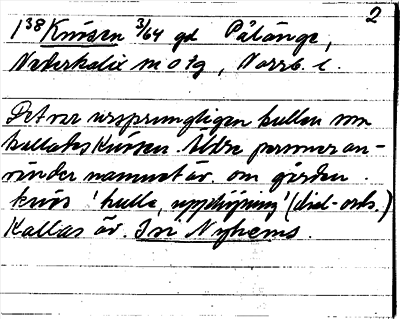 2
1³⁸ Knösen 3/64 gd Pålänge,
Nederkalix sn o tg, Norrb. l.
Det var ursprungligen kullen som
kallades Knösen. Äldre personer an-
vänder namnet äv. om gården.
knös 'kulle, upphöjning' (dial-ordb.)
Kallas äv. In i Nyhems.